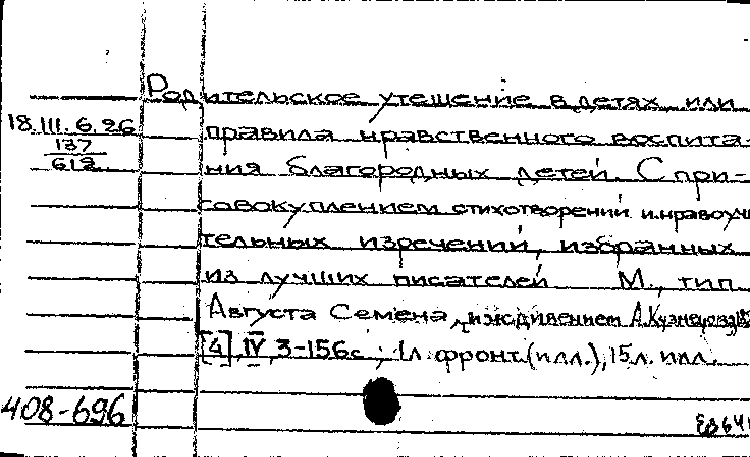 Родительское утешение в детях или
18.III.6.26
правила нравственного воспита-
137
612
ния благородных детей. С при-
совокуплением стихотворений и нравоучи
тельных изречений, избранных
из лучших писателей М., тип
Августа Семена, иждивением А. Кузнецова,
[4], IV, 3-156с., 1л. фронт.(илл.), 15л. илл.
408-696